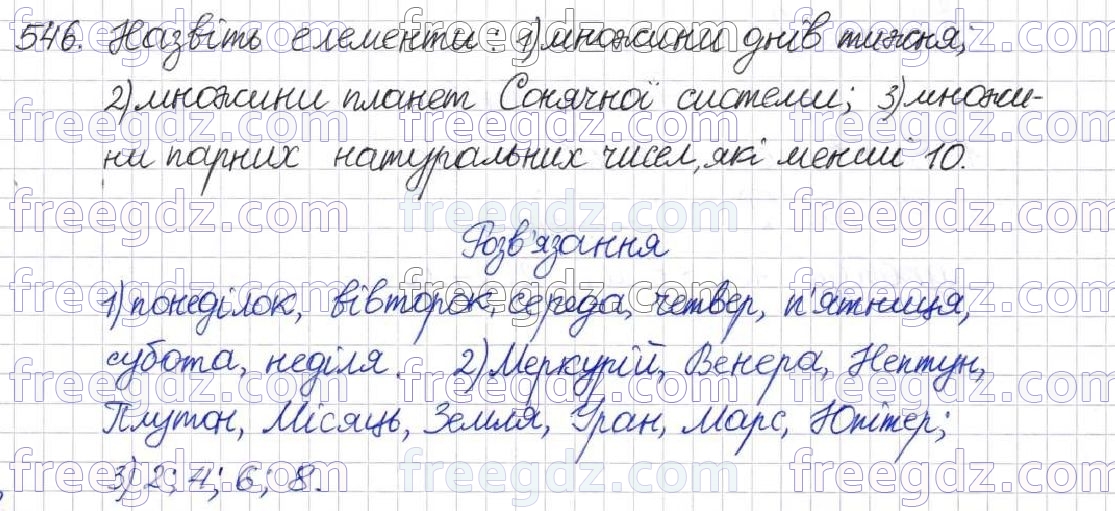 546. Назвіть елементи: 1) множини днів тижня;
2) множини планет Сонячної системи; 3) множи-
ни парних натуральних чисел, які менші 10.
Розв'язання
1) понеділок, вівторок, середа, четвер, п'ятниця,
субота, неділя. 2) Меркурій, Венера, Нептун,
Плутон, Місяць, Земля, Уран, Марс, Юпітер;
3) 2; 4; 6; 8.
freegdz.com